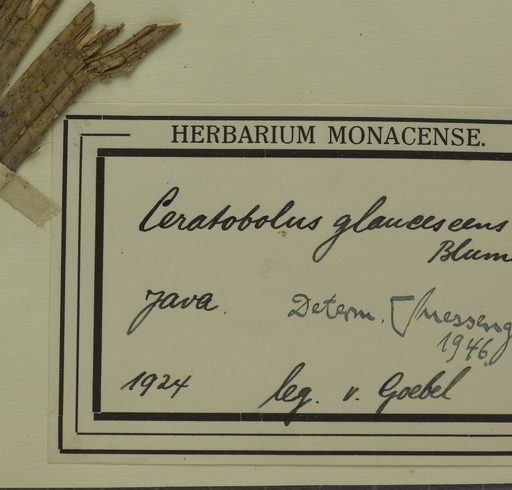 HERBARIUM MONACENSE.
Ceratobolus glaucescens
Blum
Java.
Determ. Suesseng
1946.
1924
leg. v. Goebel